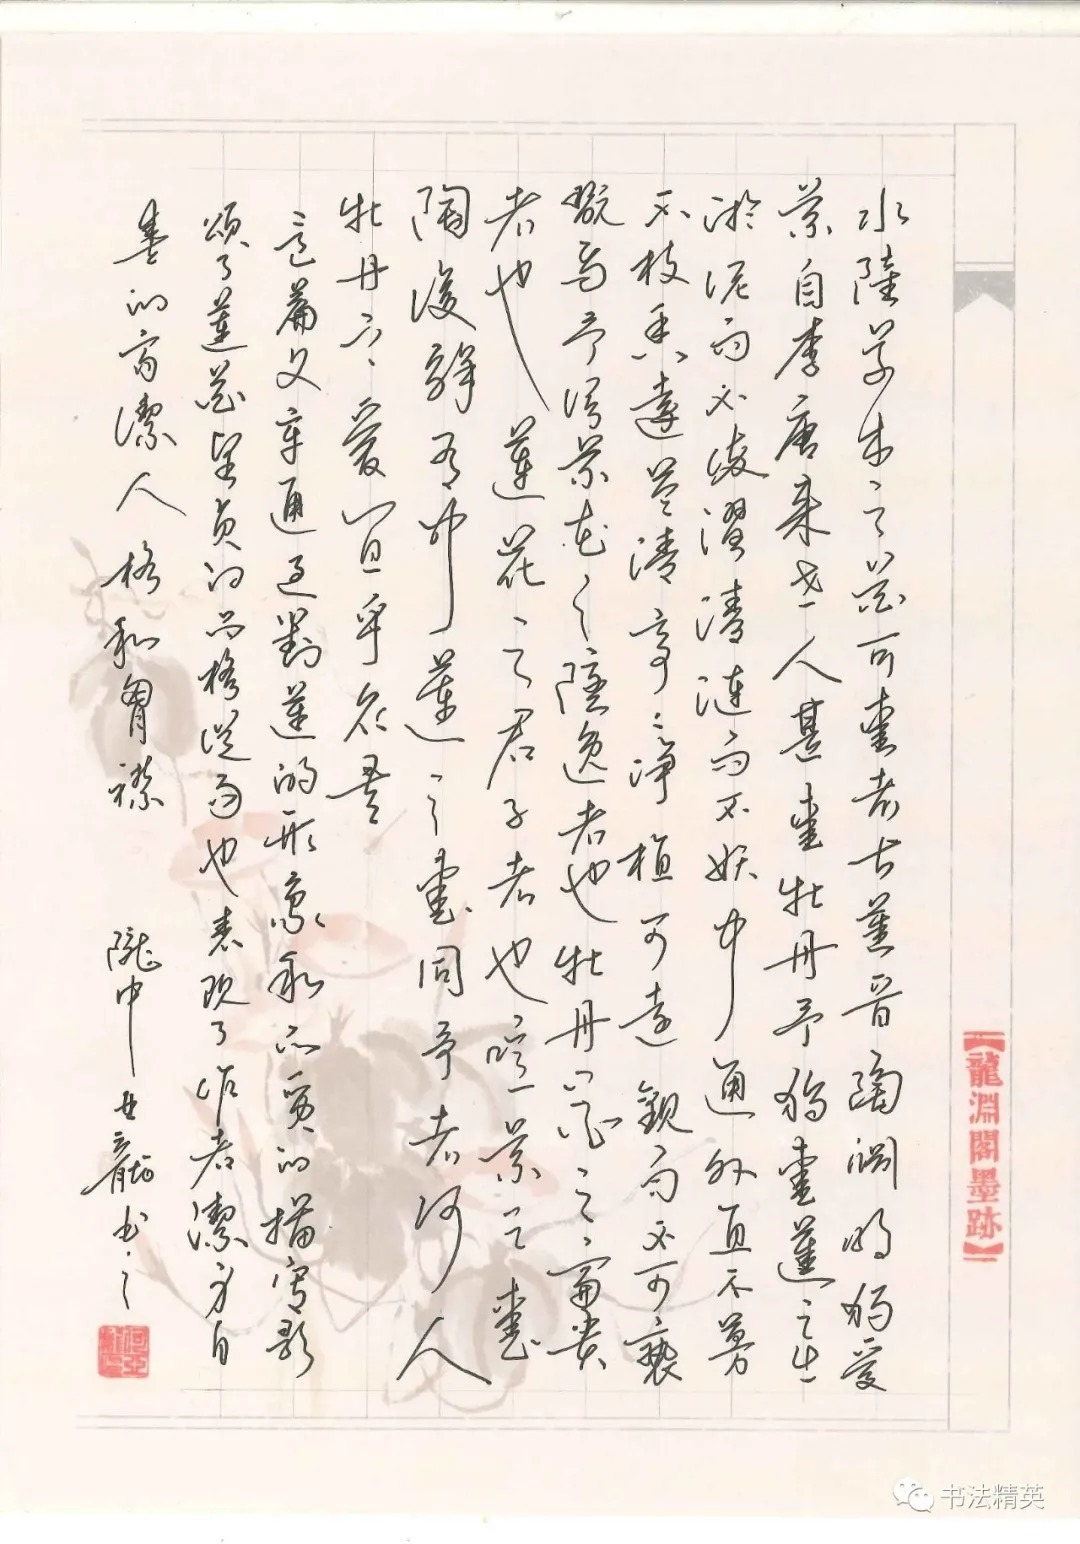 水陸草木之花可愛者甚蕃晉陶淵明獨愛
菊自李唐来世人甚愛牡丹予獨愛蓮之出
淤泥而不染濯清漣而不妖中通外直不蔓
不枝香遠益清亭亭净植可遠觀而不可褻
翫焉予谓菊花之隱逸者也牡丹花之富貴
者也蓮花之君子者也噫菊之愛
陶後鮮有聞蓮之愛同予者何人
牡丹之愛宜乎众矣
這篇文章通过對蓮的形象和品質的描寫歌
頌了蓮花坚贞的品格從而也表现了作者潔身自
愛的高潔人格和胸襟
隴中世龍书之
【龍淵閣墨跡】
书法精英